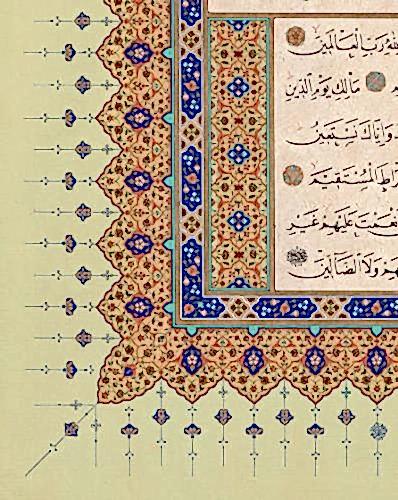 لله رَبِّ لْعَالَمِينَ
مَالِكِ يَوْمِ الدِّينِ
وَاِيَّاكَ نَسْتَعِينُ
الْمُسْتَقِيمَ
نْعَمْتَ عَلَيْهِمْ غَيْرِ
وَلَا الضَّالِّينَ